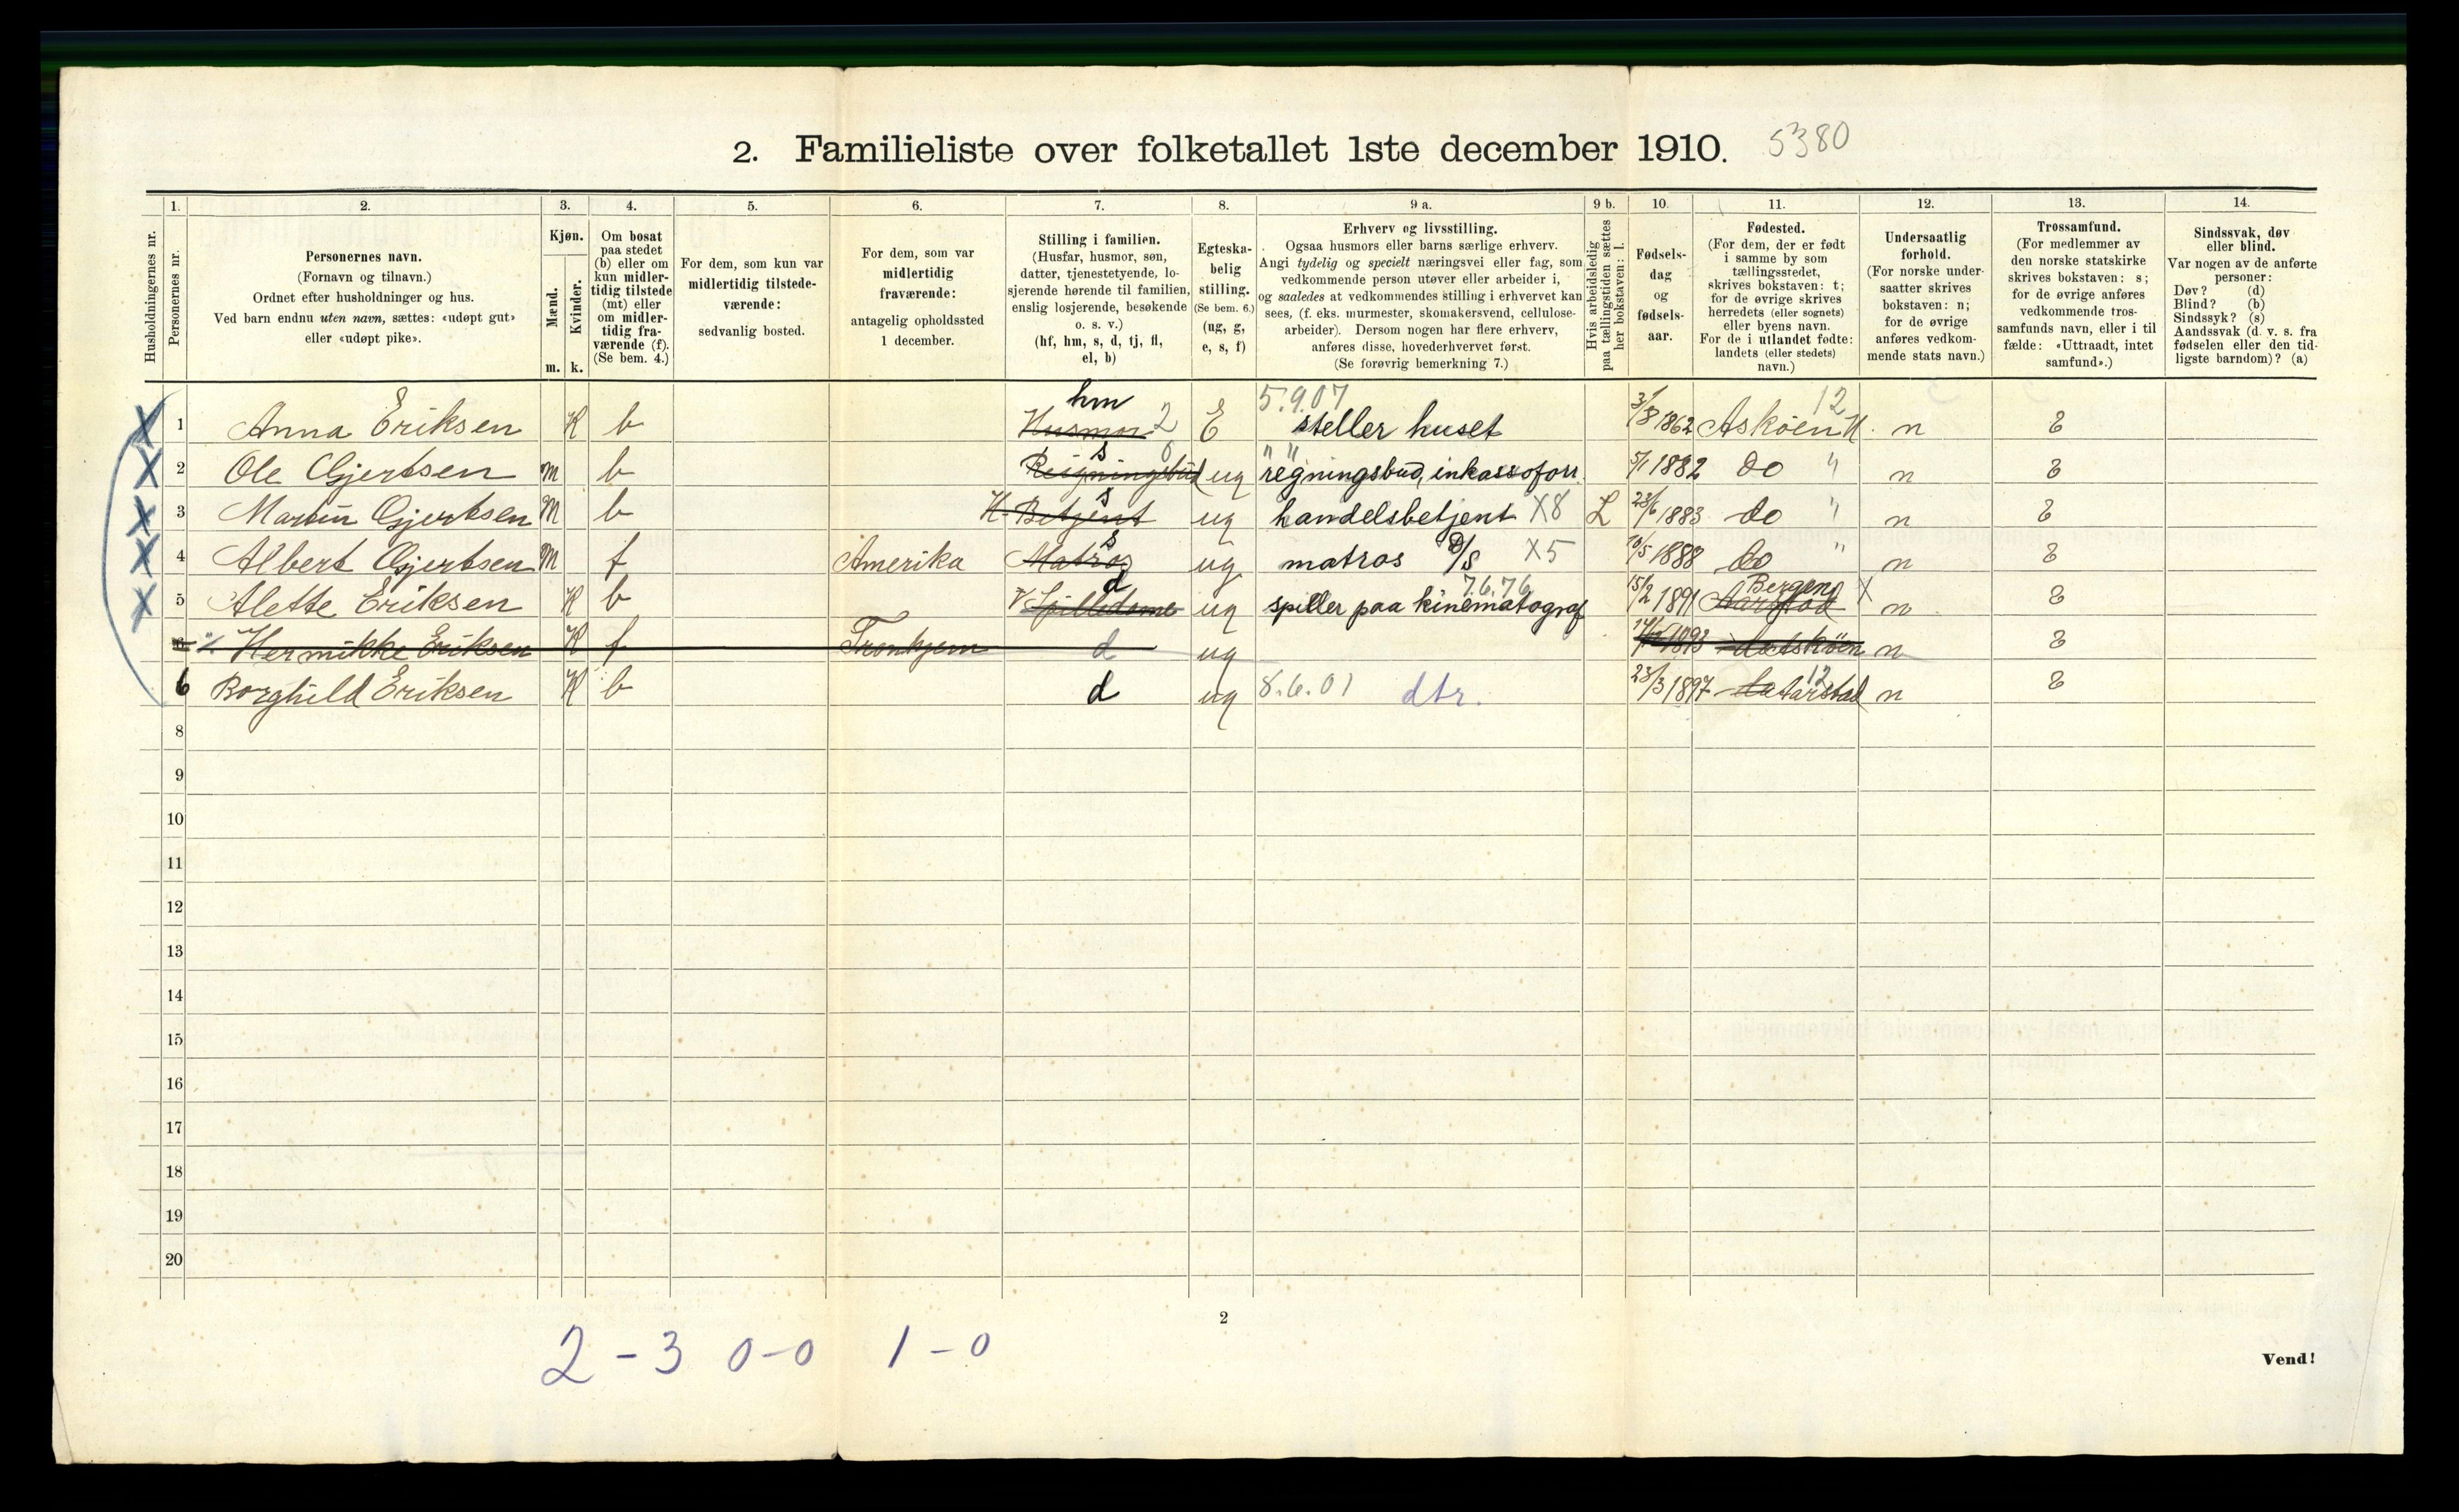 2. Familieliste over folketallet 1ste december 1910. 5380
Husholdningernes nr.
1. Personernes nr.
2. Personernes navn.
(Fornavn og tilnavn.)
Ordnet efter husholdninger og hus.
Ved barn endnu uten navn, sættes: «udøpt gut»
eller «udøpt pike».
3. Kjøn.
Mænd. Kvinder.
m. k.
4. Om bosat
paa stedet
(b) eller om
kun midler-
tidig tilstede
(mt) eller
om midler-
tidig fra-
værende (f).
(Se bem. 4.)
5. For dem, som kun var
midlertidig tilstede-
værende:
sedvanlig bosted.
6. For dem, som var
midlertidig
fraværende:
antagelig opholdssted
1 december.
7. Stilling i familien.
(Husfar, husmor, søn,
datter, tjenestetyende, lo-
sjerende hørende til familien,
enslig losjerende, besøkende
o. s. v.)
(hf, hm, s, d, tj, fl,
el, b)
8. Egteska-
belig
stilling.
(Se bem. 6.)
(ug, g,
e, s, f)
9 a. Erhverv og livsstilling.
Ogsaa husmors eller barns særlige erhverv.
Angi tydelig og specielt næringsvei eller fag, som
vedkommende person utøver eller arbeider i,
og saaledes at vedkommendes stilling i erhvervet kan
sees, (f. eks. murmester, skomakersvend, cellulose-
arbeider). Dersom nogen har flere erhverv,
anføres disse, hovederhvervet først.
(Se forøvrig bemerkning 7.)
9 b. Hvis arbeidsledig
paa tællingstiden sættes
her bokstaven: l.
10. Fødsels-
dag
og
fødsels-
aar.
11. Fødested.
(For dem, der er født
i samme by som
tællingsstedet,
skrives bokstaven: t;
for de øvrige skrives
herredets (eller sognets)
eller byens navn.
For de i utlandet fødte:
landets (eller stedets)
navn.)
12. Undersaatlig
forhold.
(For norske under-
saatter skrives
bokstaven: n;
for de øvrige
anføres vedkom-
mende stats navn.)
13. Trossamfund.
(For medlemmer av
den norske statskirke
skrives bokstaven: s;
for de øvrige anføres
vedkommende tros-
samfunds navn, eller i til
fælde: «Uttraadt, intet
samfund».)
14. Sindssvak, døv
eller blind.
Var nogen av de anførte
personer:
Døv? (d)
Blind? (b)
Sindssyk? (s)
Aandssvak (d. v. s. fra
fødselen eller den tid-
ligste barndom)? (a)
hm 5.9.07 12
X 1 Anna Eriksen K b Husmor 2 E steller huset 3/8 1862 Askøen H. n
s 0 " "
X 2 Ole Gjertsen M b Reigningsbud ug regningsbud, inkassoforr. 5/1 1882 do " n
s
X 3 Martin Gjertsen M b H. Betjent ug handelsbetjent X8 L 23/6 1883 do " n
s
X 4 Albert Gjertsen M f Amerika Matros ug matros D/S X5 10/5 1888 do " n
d 7.6.76 Bergen X
X 5 Alette Eriksen K b Spilledame ug spiller paa kinematograf 15/2 1891 Aarstad n
6 Hermikke Eriksen K f Tronhjem d ug 1893 do Asköen n
12
6 Borghild Eriksen K b d ug 8.6.01 dtr. 23/3 1897 do Aarstad n
8
9
10
11
12
13
14
15
16
17
18
19
20
2
2-3 0-0 1-0
Vend!